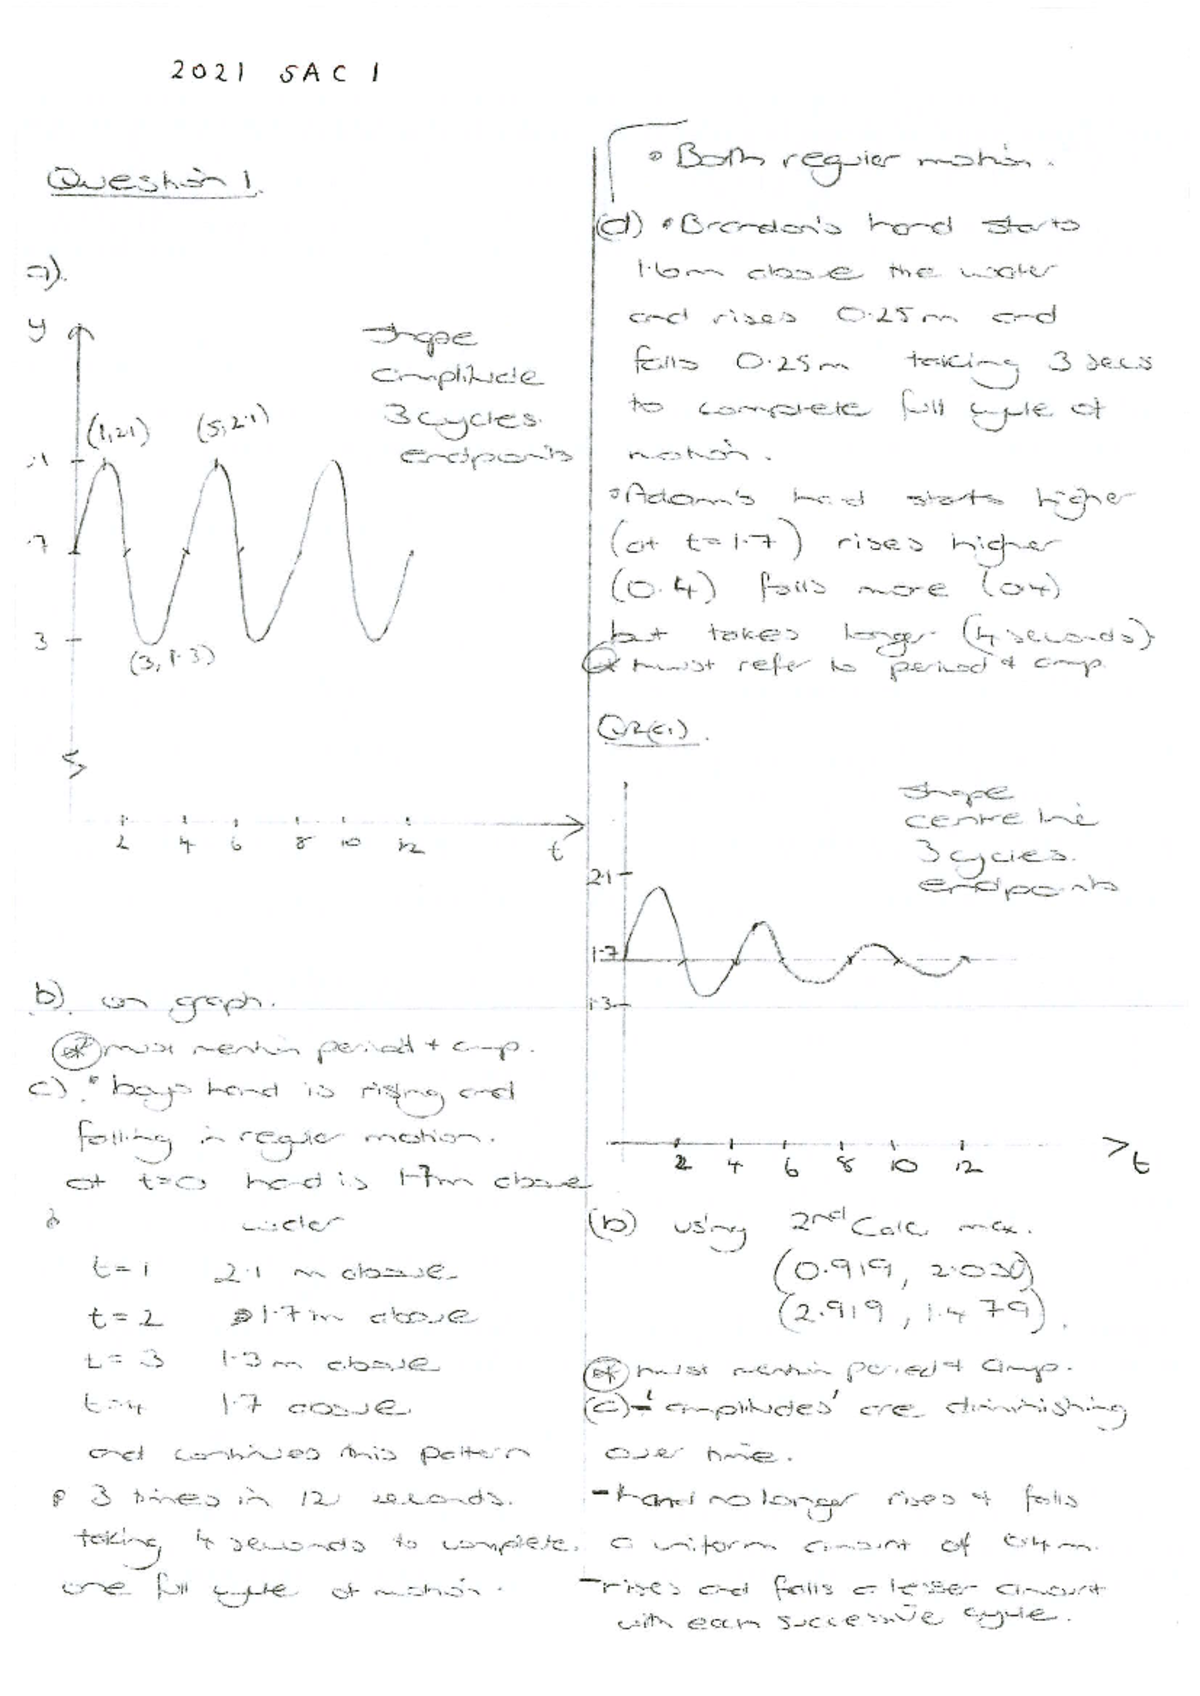 2021 SAC 1
Question 1.
a).
y
shape
amplitude
3 cycles.
endpoints
(1,2.1)
(5,2.1)
.1
.7
3
(3,1.3)
2 4 6 8 10 12
t
b). on graph.
* must mention period + amp.
c). • boys hand is rising and
falling in regular motion.
at t=0 hand is 1.7m above
water
t=1 2.1 m above
t=2 1.7m above
t=3 1.3m above
t=4 1.7 above
and continues this pattern
3 times in 12 seconds.
taking 4 seconds to complete
one full cycle of motion.
• Both regular motion.
(d) • Brandon's hand starts
1.6m above the water
and rises 0.25m and
falls 0.25m taking 3 secs
to complete full cycle of
motion.
• Adam's hand starts higher
(at t=1.7) rises higher
(0.4) falls more (0.4)
but takes longer (4 seconds).
* must refer to period + amp.
Q2(a)
shape
centre line
3 cycles.
endpoints
2.1
1.7
1.3
2 4 6 8 10 12
t
(b) using 2nd Calc max.
(0.919, 2.030)
(2.919, 1.479).
* must mention period + amp.
(c) - 'amplitudes' are diminishing
over time.
- hand no longer rises + falls
a uniform amount of 0.4m.
- rises and falls a lesser amount
with each successive cycle.